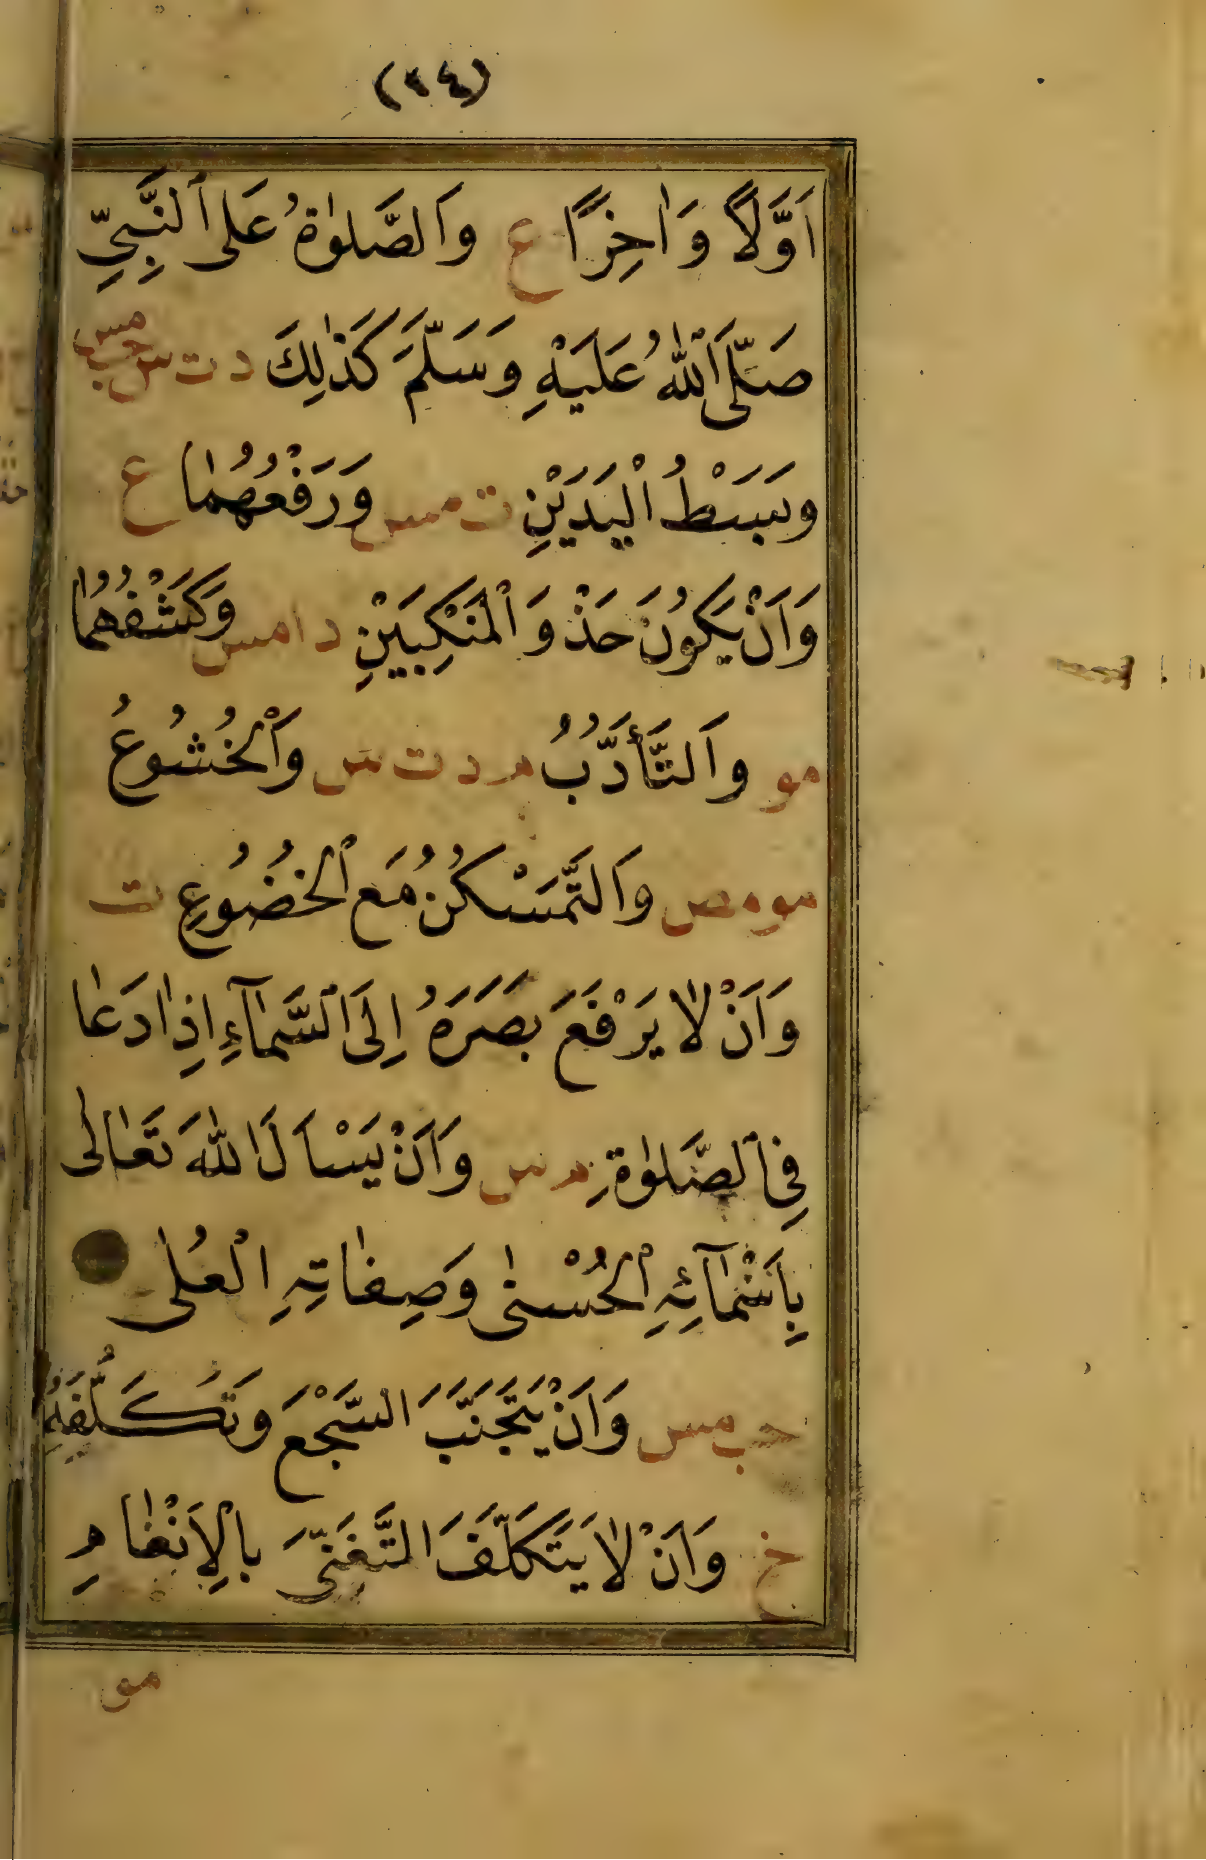 (٢٤)
اَوَّلاً وَاٰخِرًا ع وَالصَّلٰوةُ عَلَى النَّبِيِّ
صَلَّى اللّٰهُ عَلَيْهِ وَسَلَّمَ كَذٰلِكَ د ت س حب مس
وَبَسْطُ الْيَدَيْنِ ت مس وَرَفْعُهُمٰا ع
وَاَنْ يَكُونَ حَذْوَ الْمَنْكِبَيْنِ د ا مس وَكَشْفُهُمٰا
مو وَالتَّأَدُّبُ م د ت س وَالْخُشُوعُ
مو مص وَالتَّمَسْكُنُ مَعَ الْخُضُوعِ ت
وَاَنْ لٰا يَرْفَعَ بَصَرَهُ اِلَى السَّمٰآءِ اِذٰا دَعٰا
فِي الصَّلٰوةِ م س وَاَنْ يَسْاَلَ اللّٰهَ تَعٰالٰى
بِاَسْمٰآئِهِ الْحُسْنٰى وَصِفٰاتِهِ الْعُلٰى
حب مس وَاَنْ يَتَجَنَّبَ السَّجْعَ وَتَكَلُّفَهُ
خ وَاَنْ لٰا يَتَكَلَّفَ التَّغَنِّيَ بِالْاَنْغٰامِ
مو